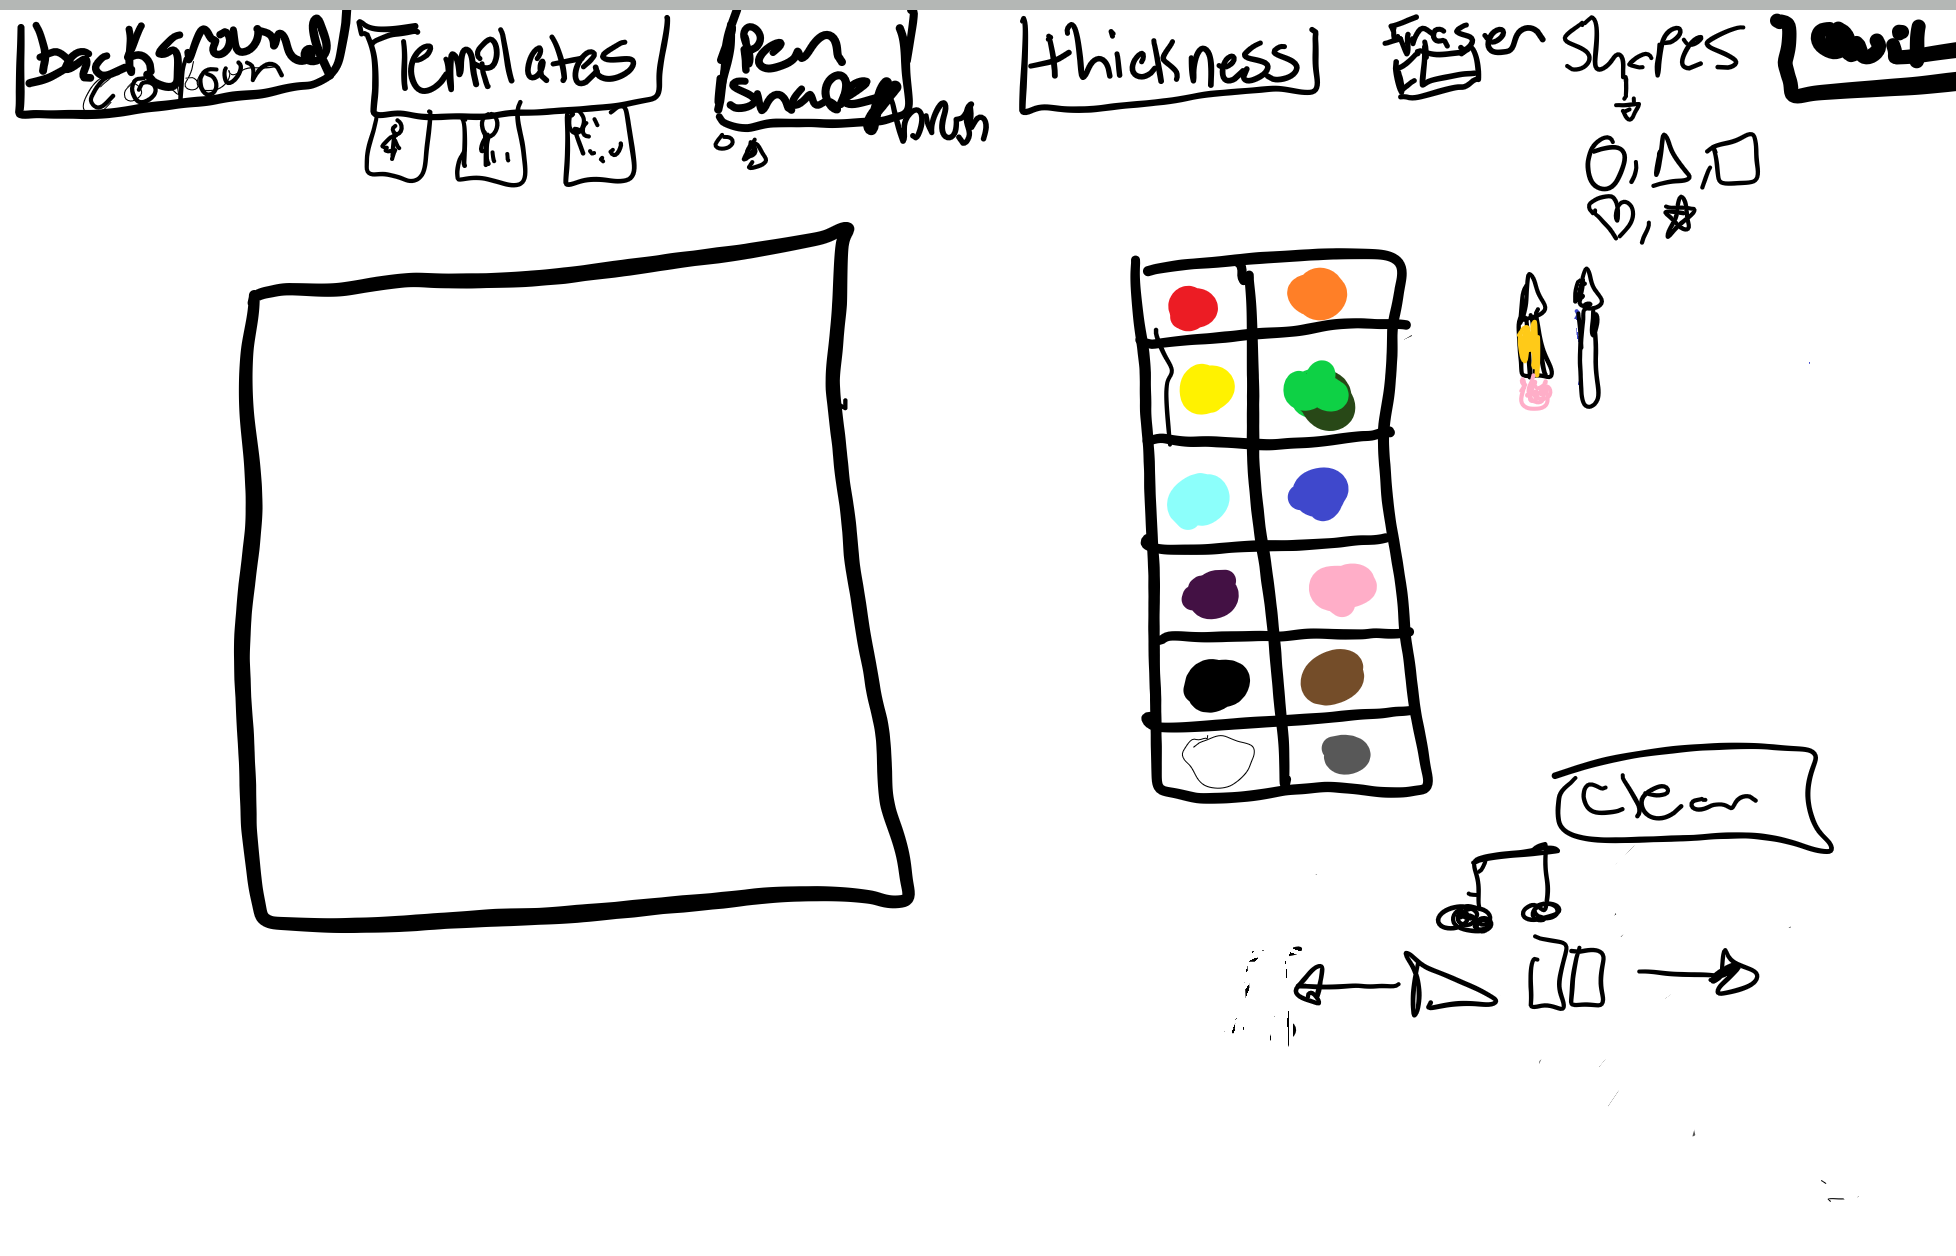 background
colour
Templates
Pen
Shape
brush
thickness
Eraser
Shapes
Quit
clear